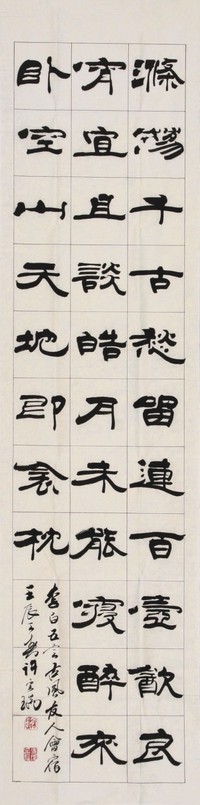 滌蕩千古愁留連百壺飲良
宵宜且談皓月未能寢醉來
臥空山天地即衾枕
李白五言古風友人會宿
壬辰